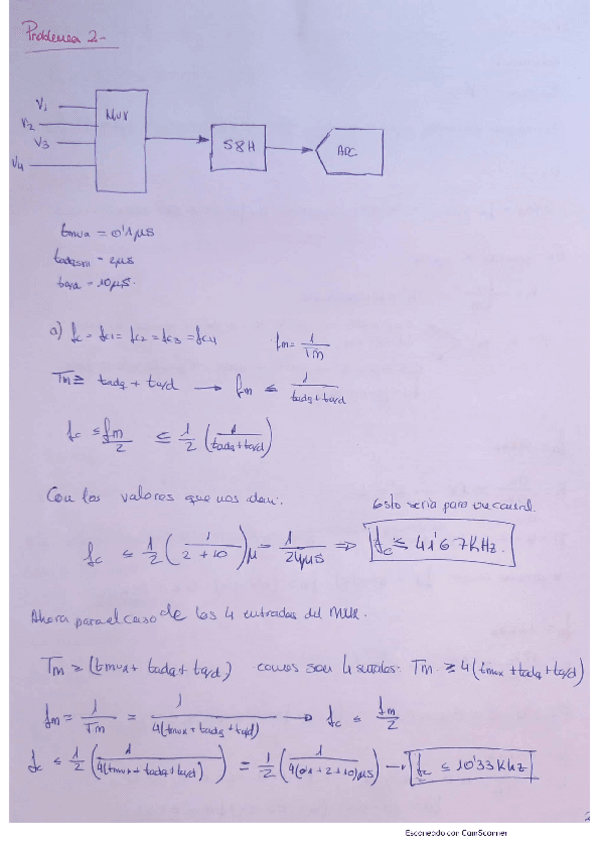 Problema 2-
V1
V2
V3
V4
MUX
S&H
ADC
tmux = 0'1 μs
tadqS&H = 2μs
ta/d = 10μs.
a) fc = fc1 = fc2 = fc3 = fc4 fm = 1/Tm
Tm ≥ tadq + ta/d → fm ≤ 1/(tadq + ta/d)
fc ≤ fm/2 ≤ 1/2 (1/(tadq + ta/d))
Con los valores que nos dan: Esto sería para un canal.
fc ≤ 1/2 (1/(2+10)μ) = 1/24μs ⇒ fc ≤ 41'67KHz.
Ahora para el caso de las 4 entradas del MUX.
Tm ≥ (tmux + tadq + ta/d) como son 4 señales: Tm ≥ 4(tmux + tadq + ta/d)
fm = 1/Tm = 1/(4(tmux + tadq + ta/d)) → fc ≤ fm/2
fc ≤ 1/2 (1/(4(tmux + tadq + ta/d))) = 1/2 (1/(4(0'1 + 2 + 10)μs)) → fc ≤ 10'33KHz
Escaneado con CamScanner